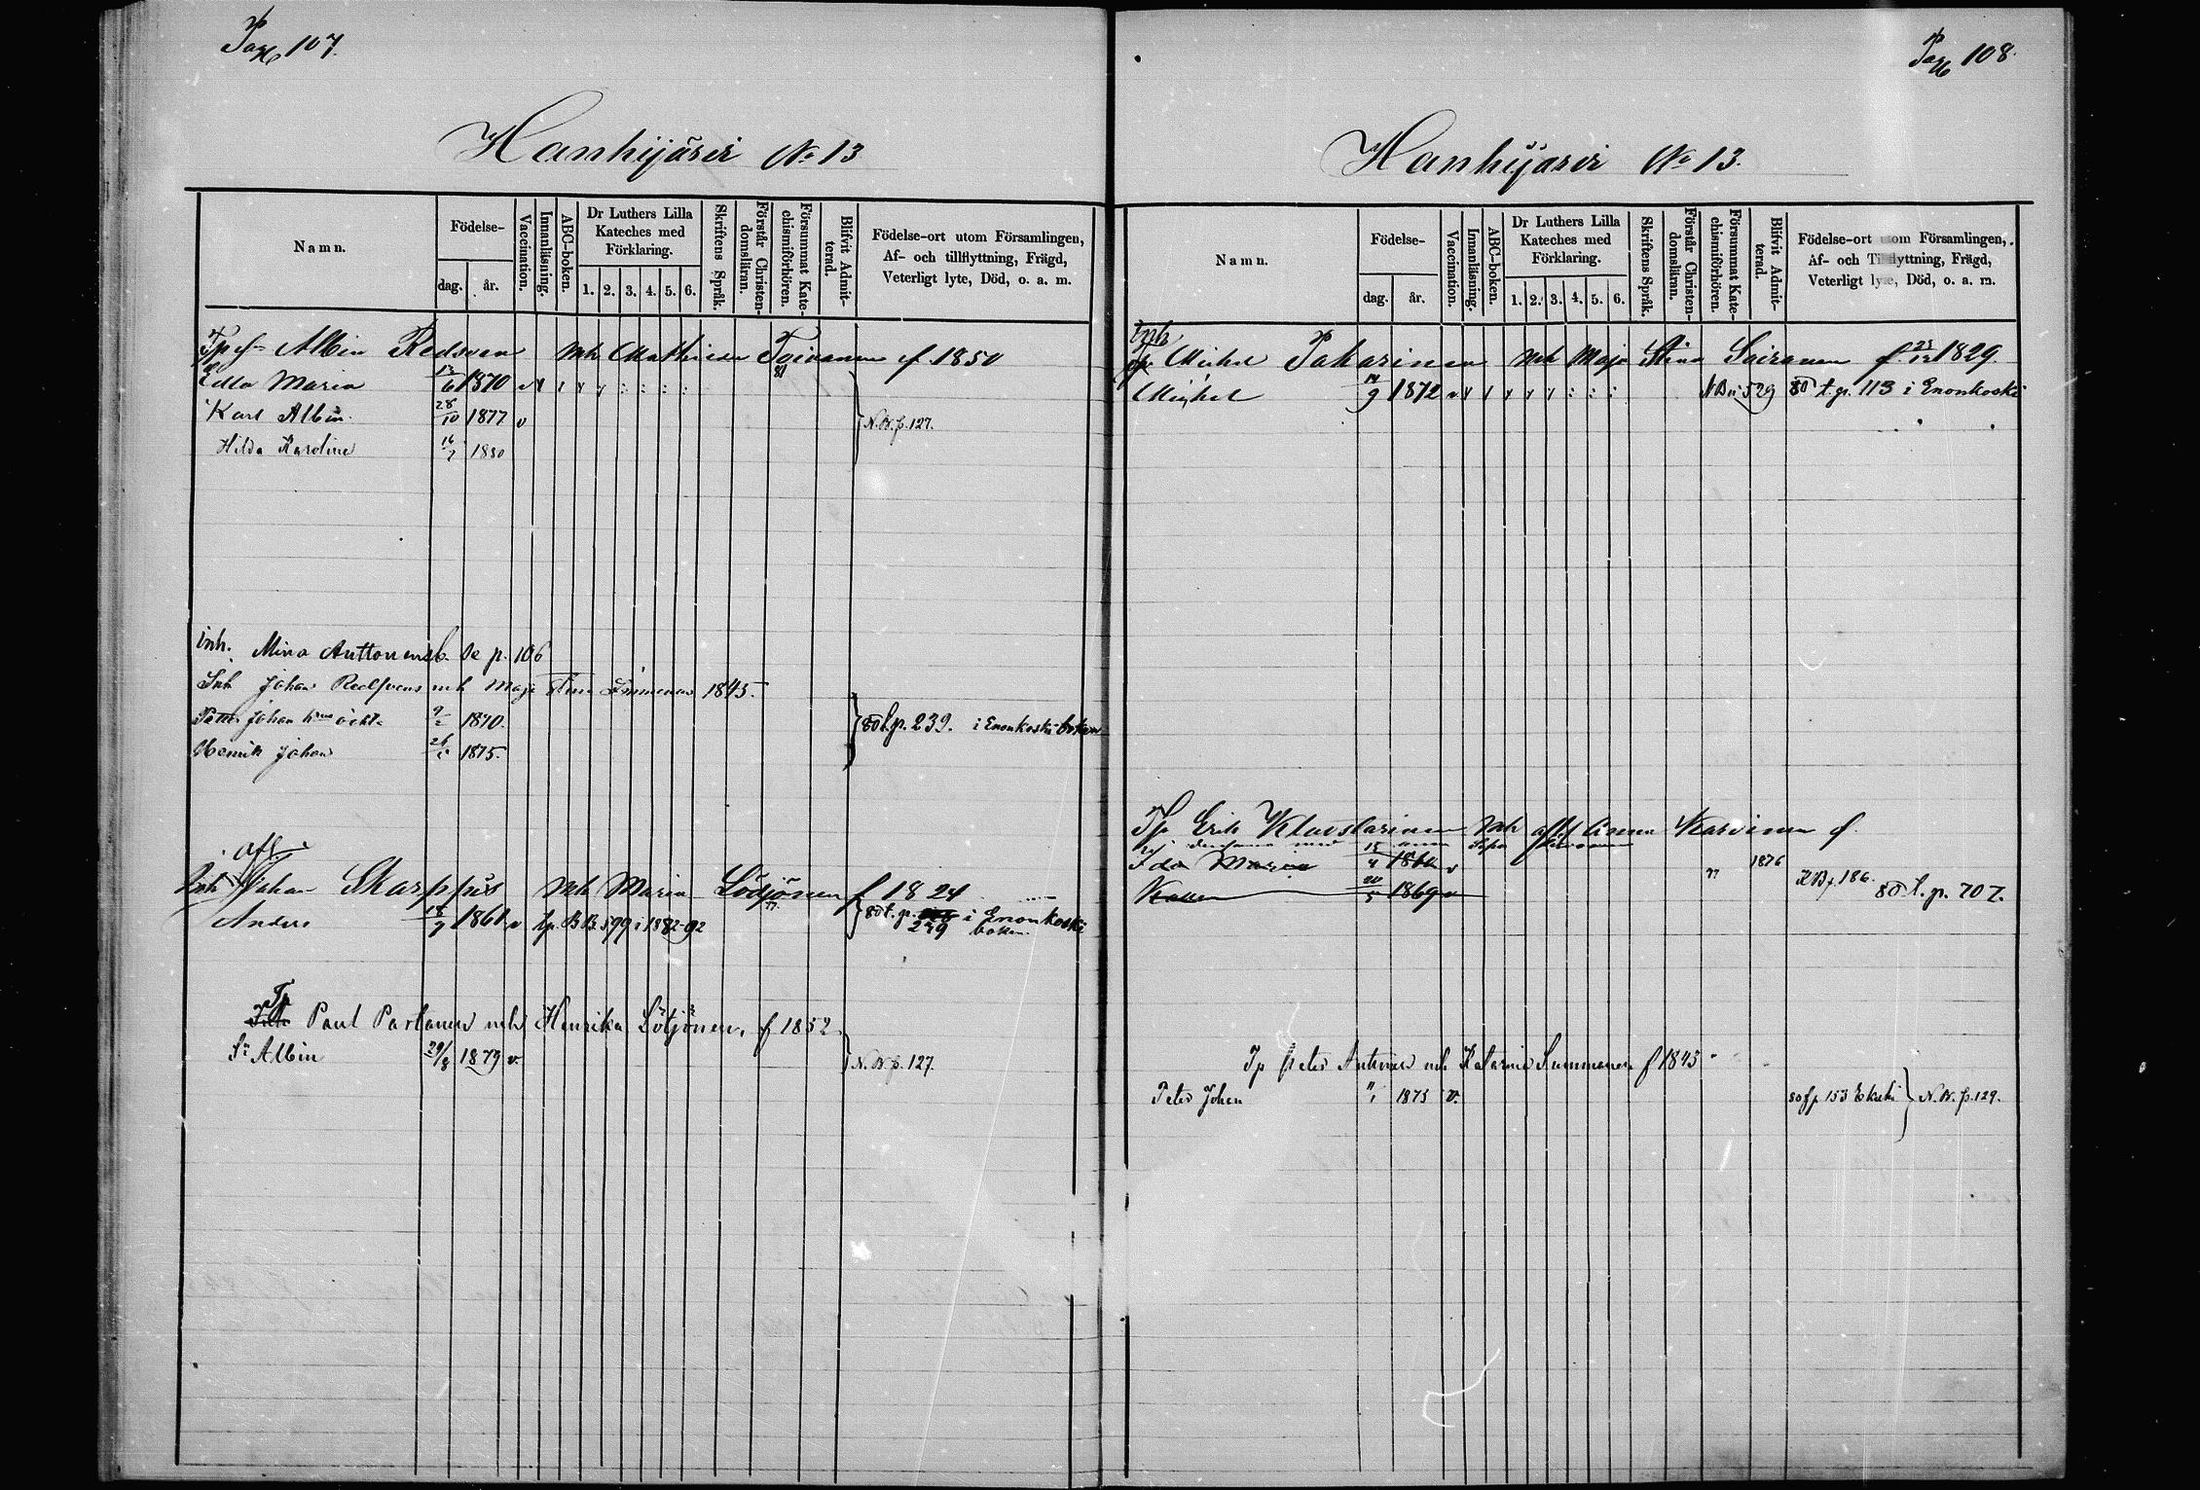 Pag 107.
Hanhijärvi No 13
Namn.
Födelse-
dag.
år.
Vaccination.
Innanläsning.
ABC-boken.
Dr Luthers Lilla
Kateches med
Förklaring.
1. 2. 3. 4. 5. 6.
Skriftens Språk.
Förstår Christen-
domsläran.
Försummat Kate-
chismiförhören.
Blifvit Admit-
terad.
Födelse-ort utom Församlingen,
Af- och tillflyttning, Frägd,
Veterligt lyte, Död, o. a. m.
Albin Redsven mh Mathilda Toivanen f 1850
Edla Maria 13/6 1870
Karl Albin 28/10 1877 v
N.B. p. 127.
Hilda Karolina 14/7 1880
inh. Mina Auttonen se p. 106
Inh Johan Redsvens mh Maja Stina Immonen 1845.
Johan 9/2 1870.
80 t.p. 239. i Enonkoski boken
Henrik Johan 26/ 1875.
afl
Inh Johan Skarppus mh Maria Lödjönen f 1824
Anders 18/9 1861 v tp. BB. 599 i 1882-92
80 t.p. 239 i Enonkoski
boken
Tp
Paul Partanen mh Henrika Lötjönen, f 1852.
Sn Albin 29/8 1879 v.
N.B. p. 127.
Pag 108.
Hanhijärvi No 13.
Namn.
Födelse-
dag.
år.
Vaccination.
Innanläsning.
ABC-boken.
Dr Luthers Lilla
Kateches med
Förklaring.
1. 2. 3. 4. 5. 6.
Skriftens Språk.
Förstår Christen-
domsläran.
Försummat Kate-
chismiförhören.
Blifvit Admit-
terad.
Födelse-ort utom Församlingen,
Af- och Tillflyttning, Frägd,
Veterligt lyte, Död, o. a. m.
Inh
Michel Pakarinen mh Maja Stina Sairanen f. 23/12 1829.
Michel 14/9 1872 v
529 80 t.p. 113 i Enonkoski
Tp Erik Kloustarinen mh afl Anna Karvinen f.
Ida Maria 15/4 v
1876
p. 186.
20/5 1869 v
80 t.p. 707.
Tp Peter Auttonen mh Katarina Summanen f 1843
Peter Johan 1875 v.
80 p 153
N.B. p. 129.